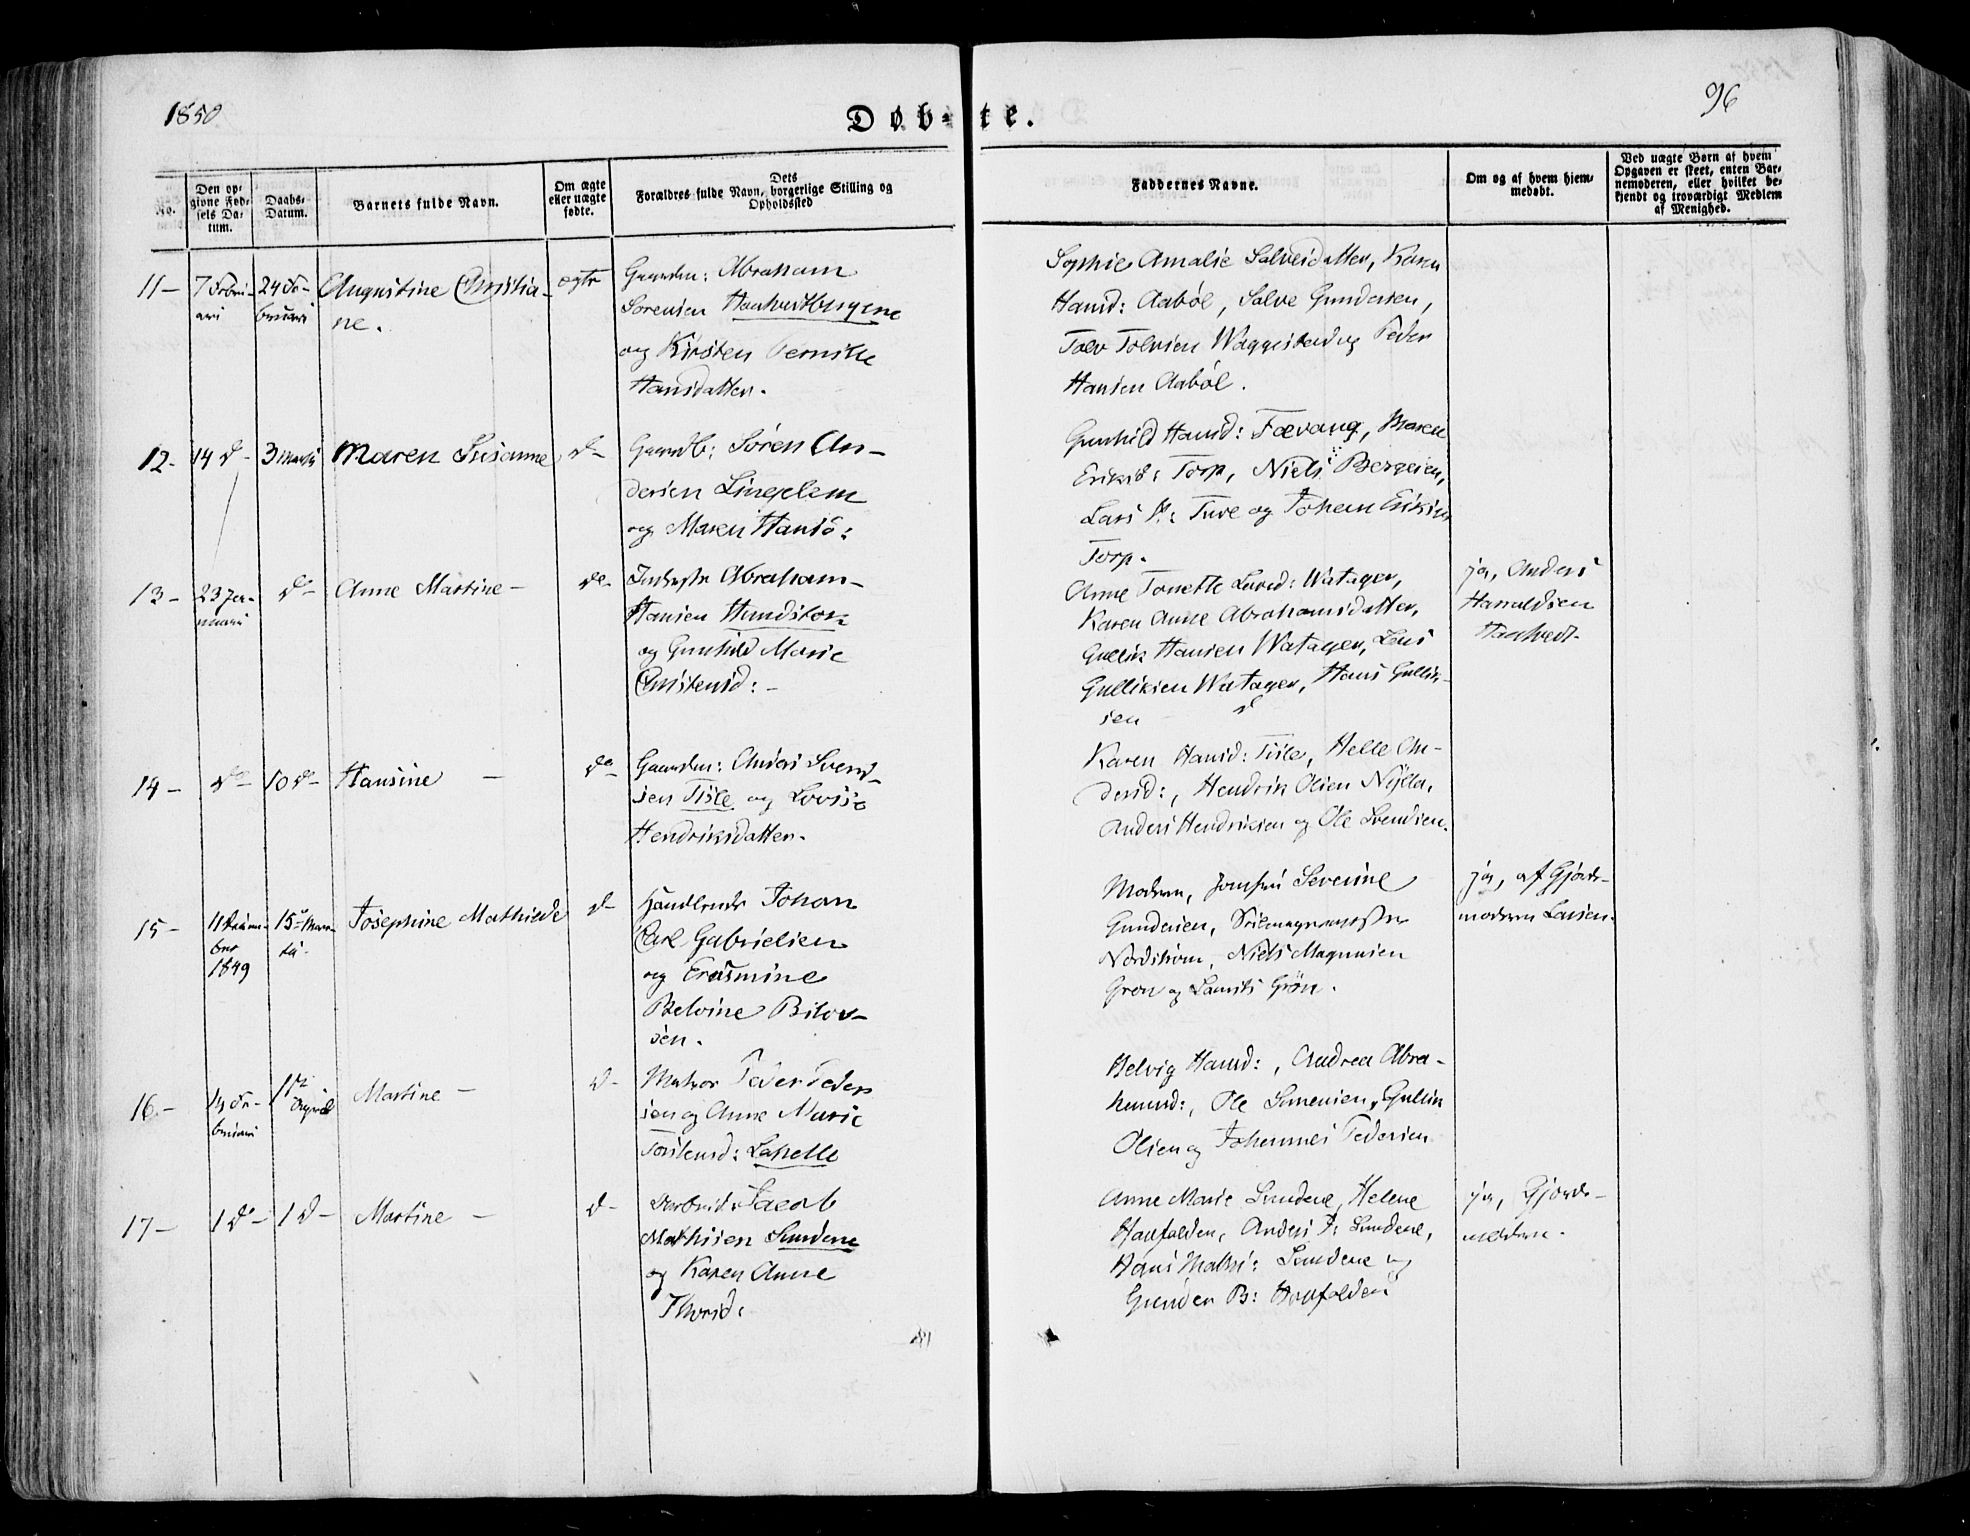 1850
Døb-te.
96
No.
Den op-
givne Fød-
sels Da-
tum.
Daabs-
Datum.
Barnets fulde Navn.
Om ægte
eller uægte
fødte.
Dets
Forældres fulde Navn, borgerlige Stilling og
Opholdssted
Faddernes Navne.
Om og af hvem hjem-
medøbt.
Ved uægte Børn af hvem
Opgaven er skeet, enten Bar-
nemoderen, eller hvilket be-
kjendt og troværdigt Medlem
af Menighed.
11-
7 Febru-
ari
24 Fe-
bruari
Augustine Christia-
ne.
ægte
Gaardm: Abraham
Sørensen
og Kirsten Pernille
Hansdatter.
Sophie Amalie Salvesdatter, Karen
Hansd: Aabøl, Salve Gundersen,
Tolv Tolvsen og Peder
Hansen Aabøl.
12-
14 d-
3 Martii
Maren Susanne
d-
Gaardb: Søren An-
dersen Lingelem
og Maren Hansd:
Gunhild Hansd: Fævang, Maren
Eriksd: Torp, Niels Bergesen,
Lars Tuve og Johan Eriksen
Torp.
13-
23 Ja-
nuari
do-
Anne Martine-
do-
Inderste Abraham
Hansen Hundstok
og Gunhild Marie
Christensd:-
Anne Tonette Larsd: Watager,
Karen Anne Abrahamsdatter,
Gullik Hansen Watager, Lars
Gulliksen Watager, Hans Gullik-
sen d
ja, Anders
Haraldsen
Haatvedt.
14-
do-
10 do-
Hansine -
do-
Gaardm: Anders Svend-
sen Tisle og Lovise
Hendriksdatter.
Karen Hansd: Tisle, Helle An-
dersd:, Hendrik Olsen
Anders Hendriksen og Ole Svendsen.
15-
11 Decem-
ber
1849
15de Mar-
tii.
Josephine Mathilde
d-
Handlende Johan
Carl Gabrielsen
og Erasmine
Belvine
sen.
Modern, Jomfru Severine
Gundersen,
Niels Magnusen
Grøn og Laurits Grøn.
ja, af Gjorde-
modern Larsen.
16-
14 Fe-
bruari
1ste
April
Martine -
d-
Matros Peder Peder
sen og Anne Marie
Torstensd:
Helvig Hansd:, Andrea Abra-
hamsd:, Ole Simensen, Gullik
Olsen og Johannes Pedersen
17-
1 do-
1 d-
Martine -
d-
Jacob
Mathisen Sundene
og Karen Anne
Thorsd:
Anne Marie Sundene, Helene
Havfalden, Anders P: Sundene,
Hans Maths: Sundene og
Gunder B: Havfalden
ja, Gjorde-
modern.